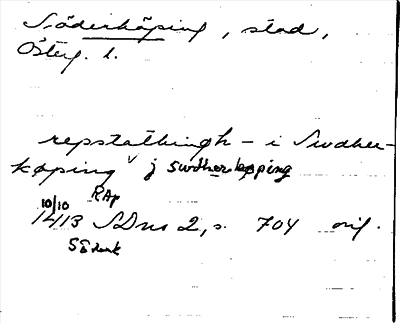 Söderköping, stad,
Österg. l.
repstathingh - i Swdher-
køping j swdherkøping
10/10 RAp
1413 SDns 2, s. 704 orig.
Söderk